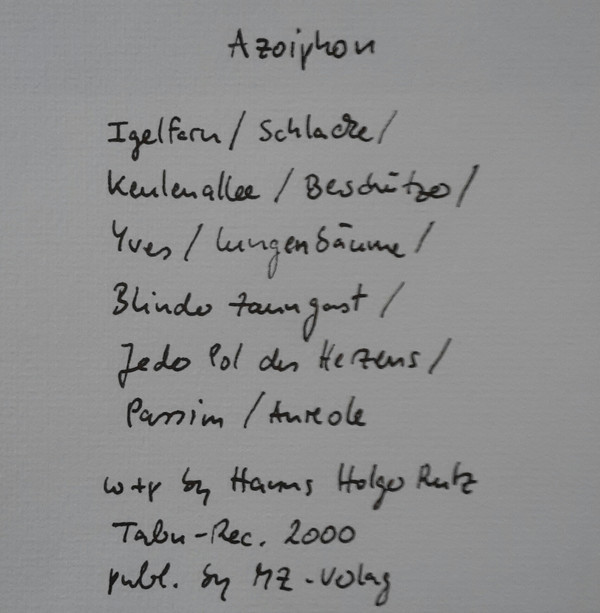 Azoiphon
Igelfarn / Schlacke /
Keulenallee / Beschützer /
Yves / Lungenbäume /
Blinder Zaungast /
Jeder Pol des Herzens /
Passim / Aureole
w+p by Hanns Holger Rutz
Tabu-Rec. 2000
publ. by MZ-Verlag